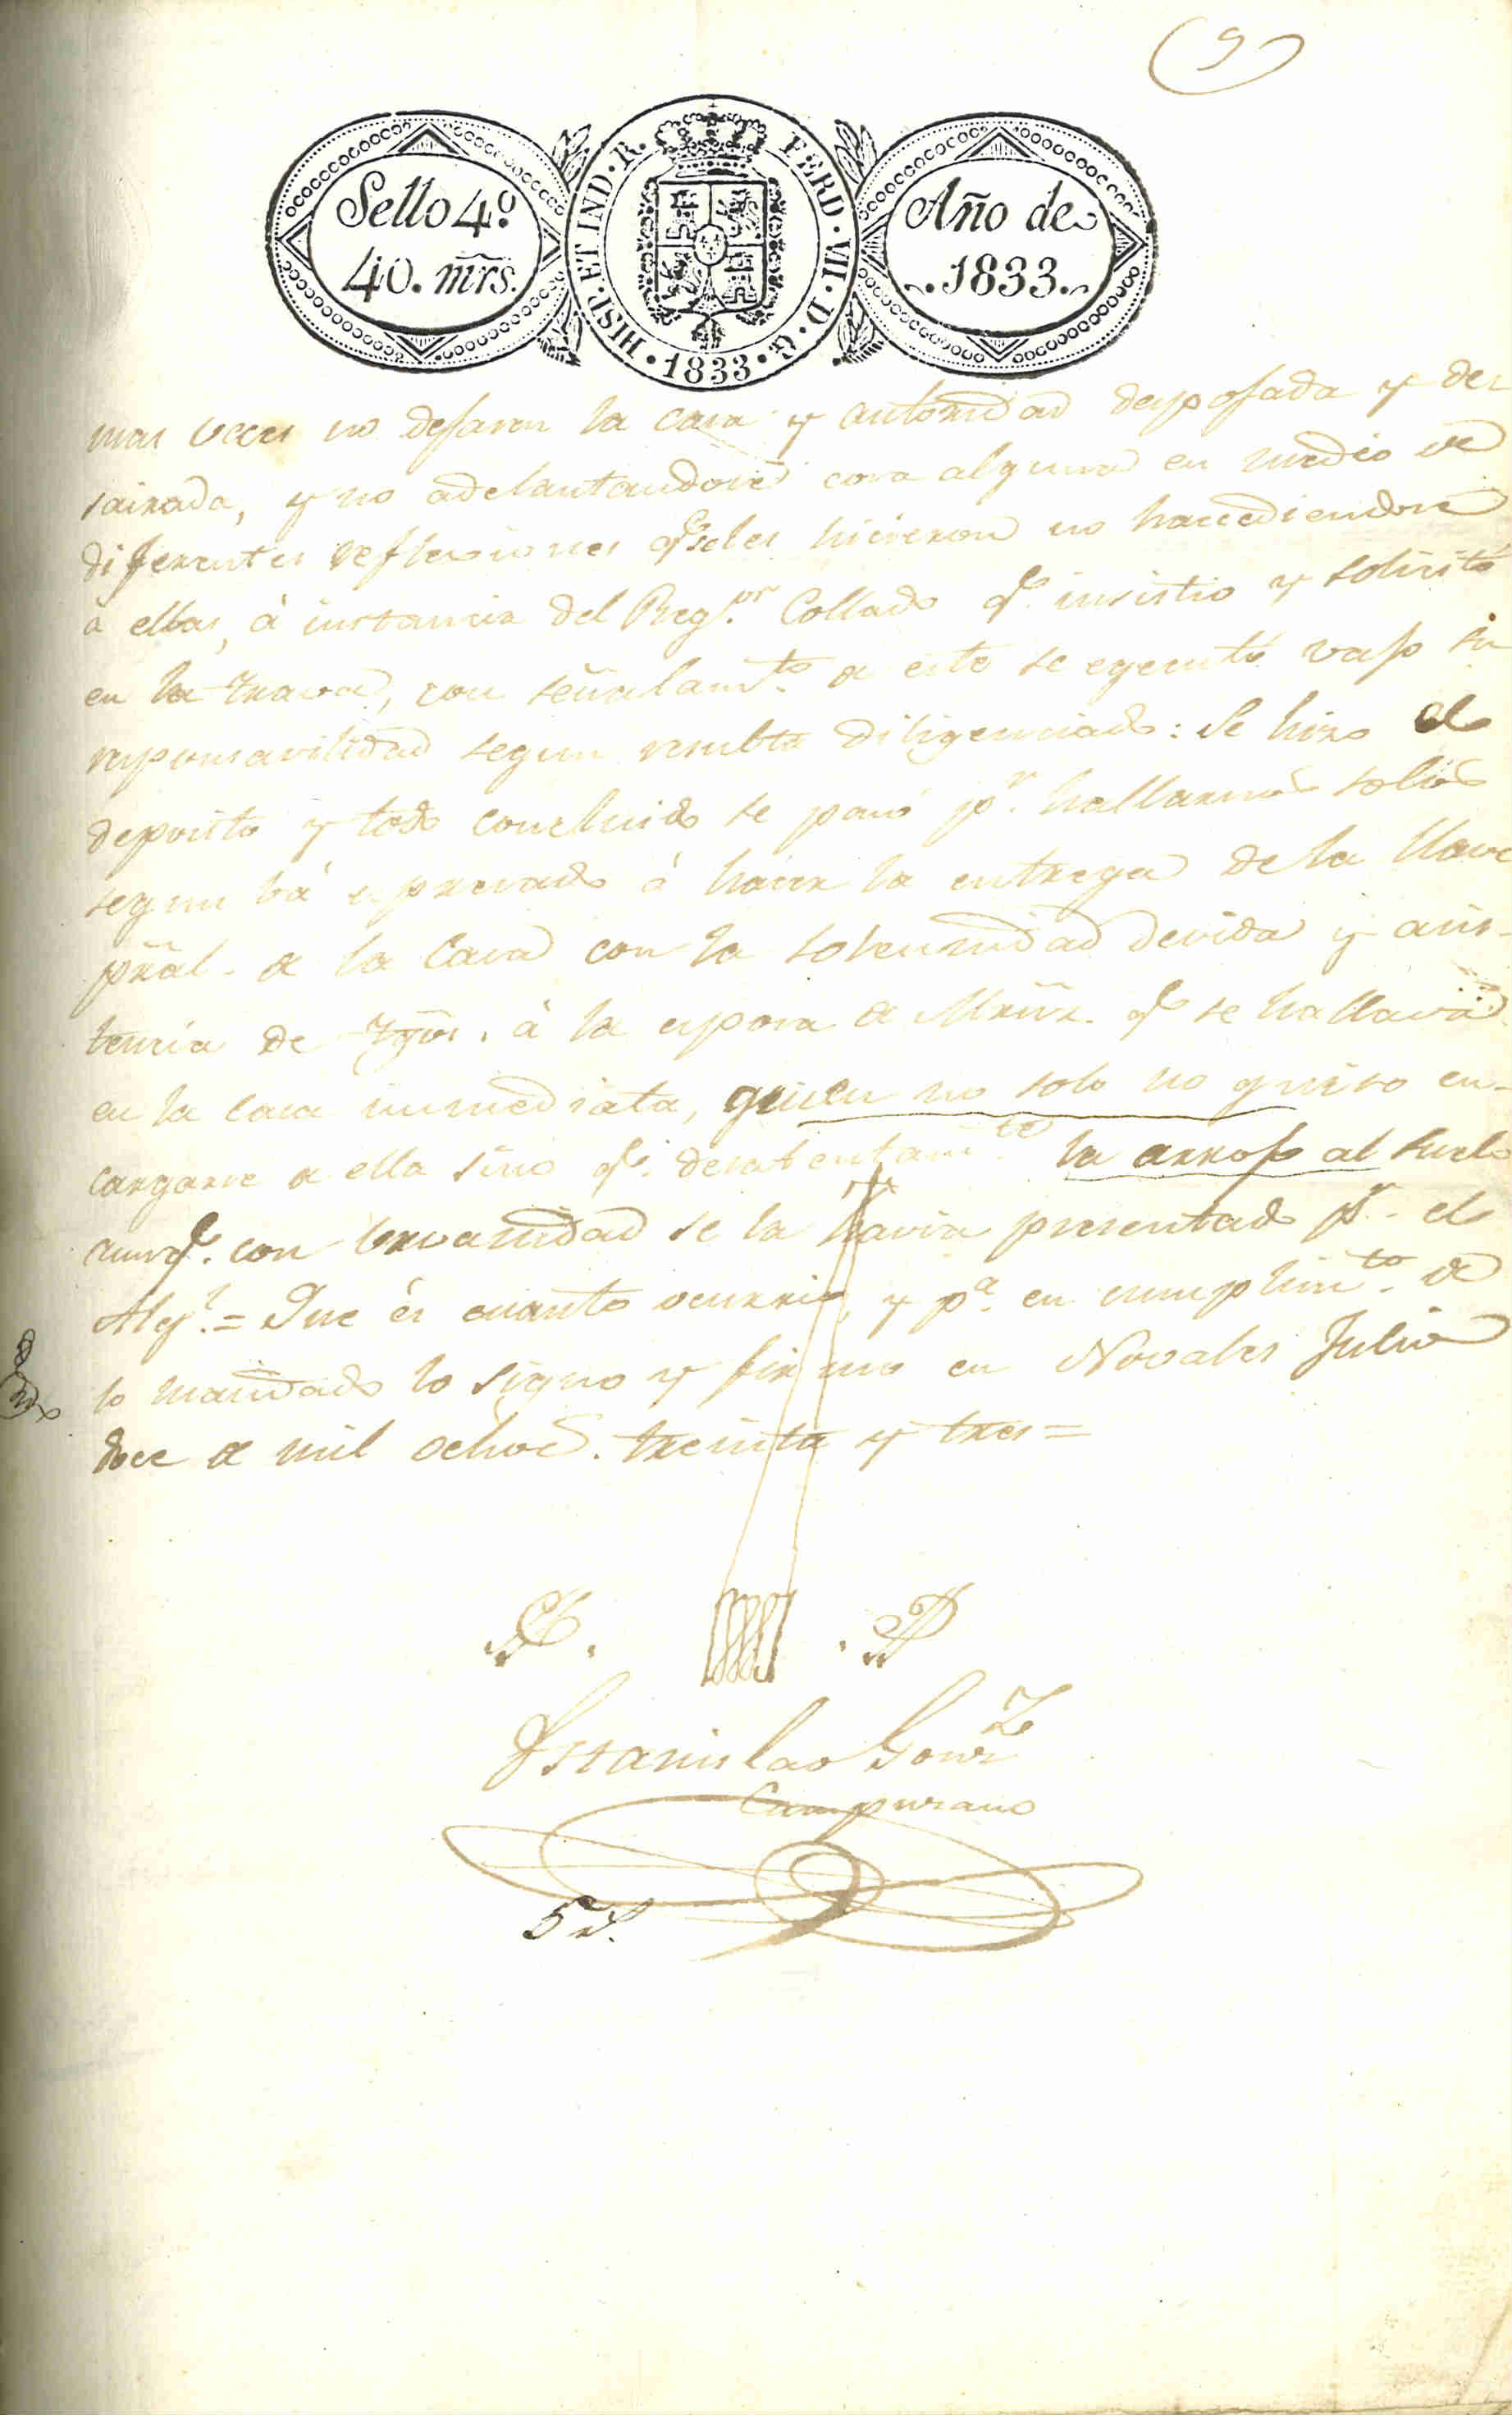 9
Sello 4º
40. mrs.
HISP. ET IND. R. FERD. VII. D. G. 1833
Año de
1833.
mas veces no dejasen la casa y autoridad despojada y des
sairada, y no adelantandose cosa alguna en medio de
diferentes reflexiones qe. seles hicieron no haccediendose
à ellas, à instancia del Regr. Collado qe. insistio y solicitó
en la trava, con señalamto. a este se egecutó vajo su
responsavilidad segun resulta diligenciado: Se hizo el
deposito y todo concluido se pasó pr. hallarnos solos
segun bá espresado á hacer la entrega de la llave
pral. a la Casa con la solemnidad devida y asis-
tencia de tgos. à la esposa a Mrnz. qe se hallava
en la casa inmediata, quien no solo no quiso en-
cargarse a ella sino qe. desatentamte. la arrojo al suelo
aunqe. con urvanidad se la havia presentado pr. el
Algl. = Que és cuanto ocurrio, y pa. en cumplimto. de
lo mandado lo signo y firmo en Novales Julio
doce a mil ochoc. treinta y tres =
Estanislao Gonz
Campuzano
5 rs.